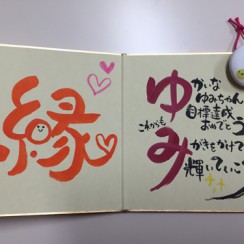 縁
ゆかいな
ゆみちゃん
目標達成
おめでとう
これからも
みがきをかけて
輝いていこう